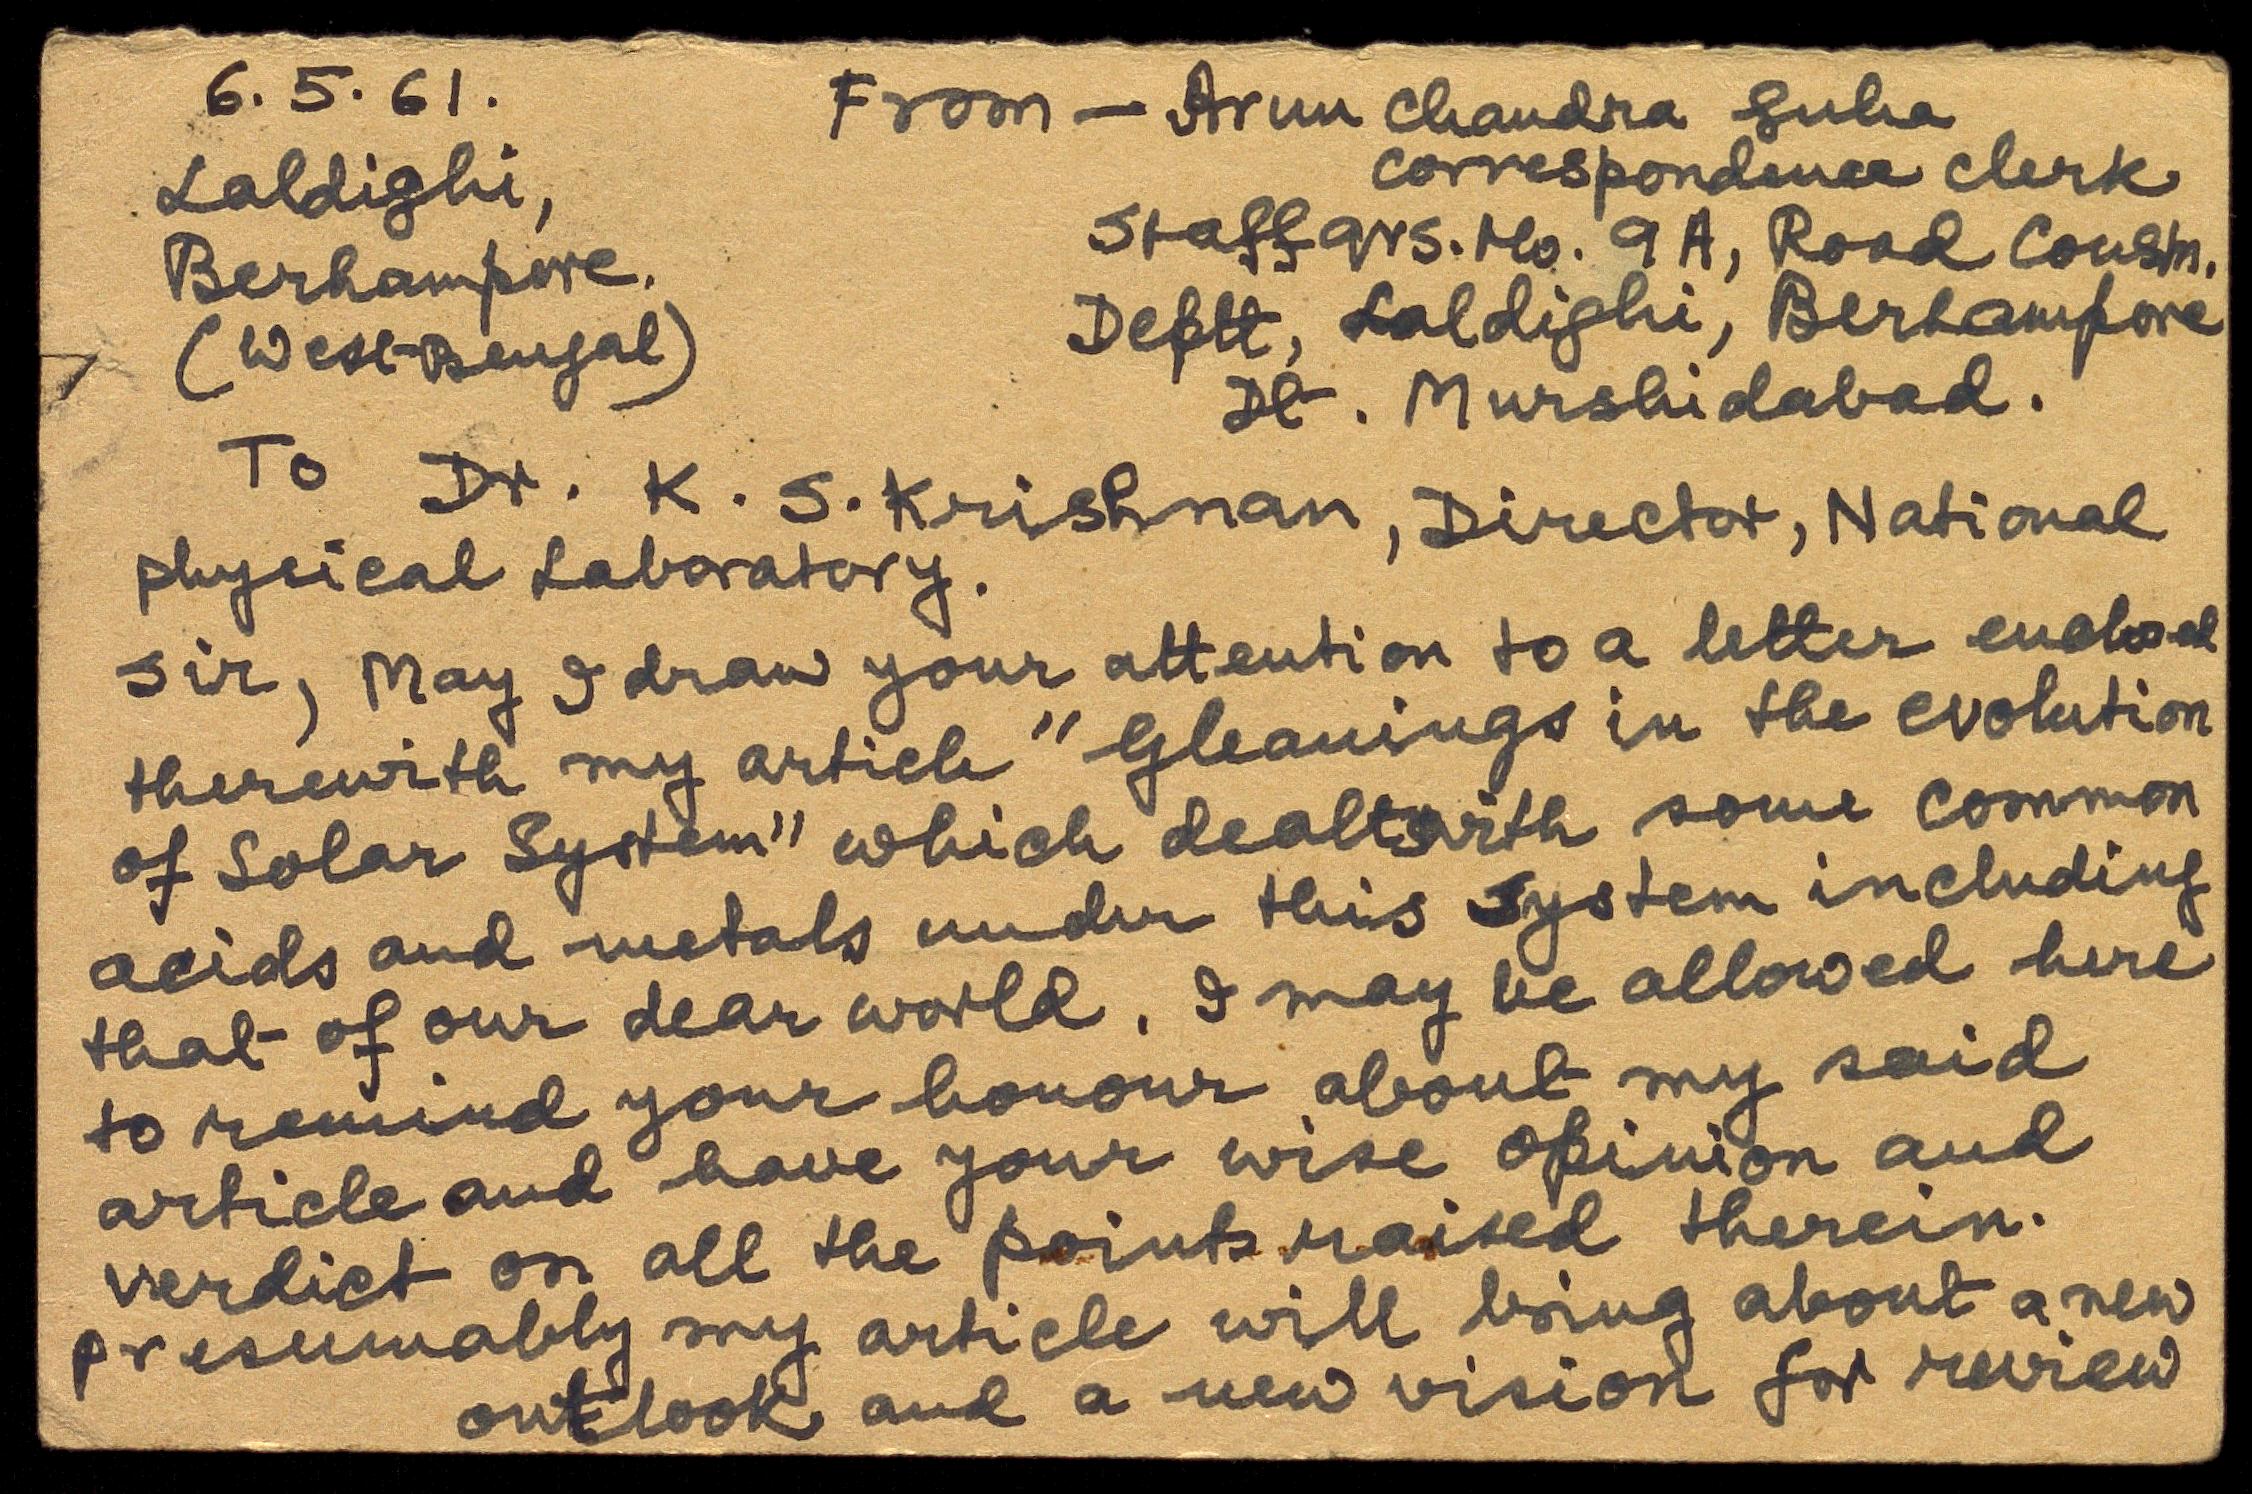 6.5.61.
Laldighi,
Berhampore.
(West-Bengal)
From - Arun Chandra Guha
correspondence clerk
Staff qrs. No. 9A, Road Constn.
Deptt, Laldighi, Berhampore
Dt. Murshidabad.
To Dr. K. S. Krishnan, Director, National
physical Laboratory.
Sir, May I draw your attention to a letter enclosed
therewith my article "Gleanings in the evolution
of Solar System" which dealts with some common
acids and metals under this system including
that of our dear world. I may be allowed here
to remind your honour about my said
article and have your wise opinion and
verdict on all the points raised therein.
presumably my article will bring about a new
outlook and a new vision for review